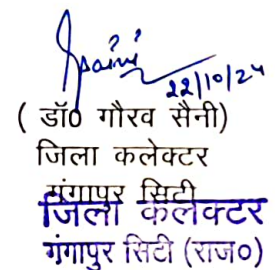 Gsaini
22/10/24
( डॉ0 गौरव सैनी)
जिला कलेक्टर
गंगापुर सिटी
जिला कलेक्टर
गंगापुर सिटी (राज०)